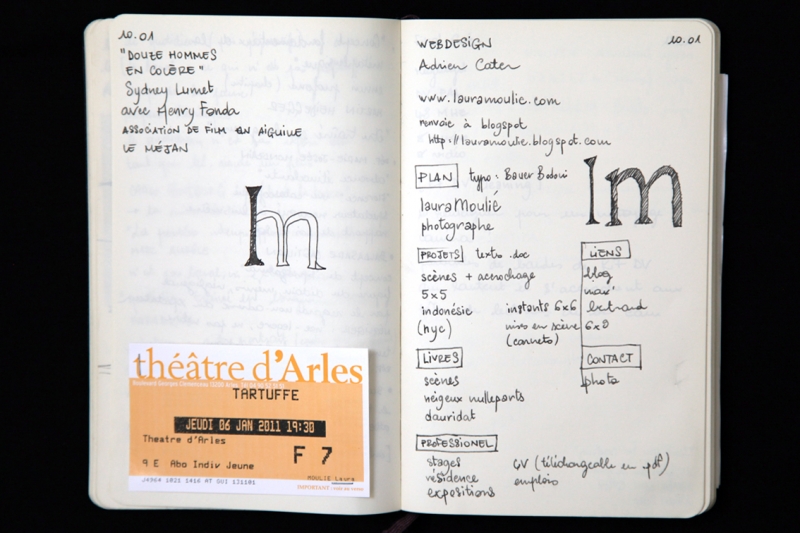 10.01
"DOUZE HOMMES
EN COLÈRE"
Sydney Lumet
avec Henry Fonda
ASSOCIATION DE FILM EN AIGUILLE
LE MÉJAN
lm
théâtre d'Arles
Boulevard Georges Clemenceau 13200 Arles
TARTUFFE
JEUDI 06 JAN 2011 19:30
Theatre d'Arles
F 7
9 E Abo Indiv Jeune
MOULIE Laura
J4964 1021 1416 AT GUI 121101
IMPORTANT :
WEBDESIGN
10.01
Adrien Cater
www.lauramoulie.com
renvoie à blogspot
http://lauramoulie.blogspot.com
PLAN typo : Bauer Bodoni
lm
laura Moulié
photographe
PROJETS texto .doc
scènes + accrochage
5x5
indonésie instants 6x6
(nyc) mise en scène 6x9
(carnets)
LIENS
blog
max'
bertrand
LIVRES
scènes
neigeux nulleparts
dauridat
CONTACT
photo
PROFESSIONEL
stages CV (téléchargeable en pdf)
résidence emplois
expositions